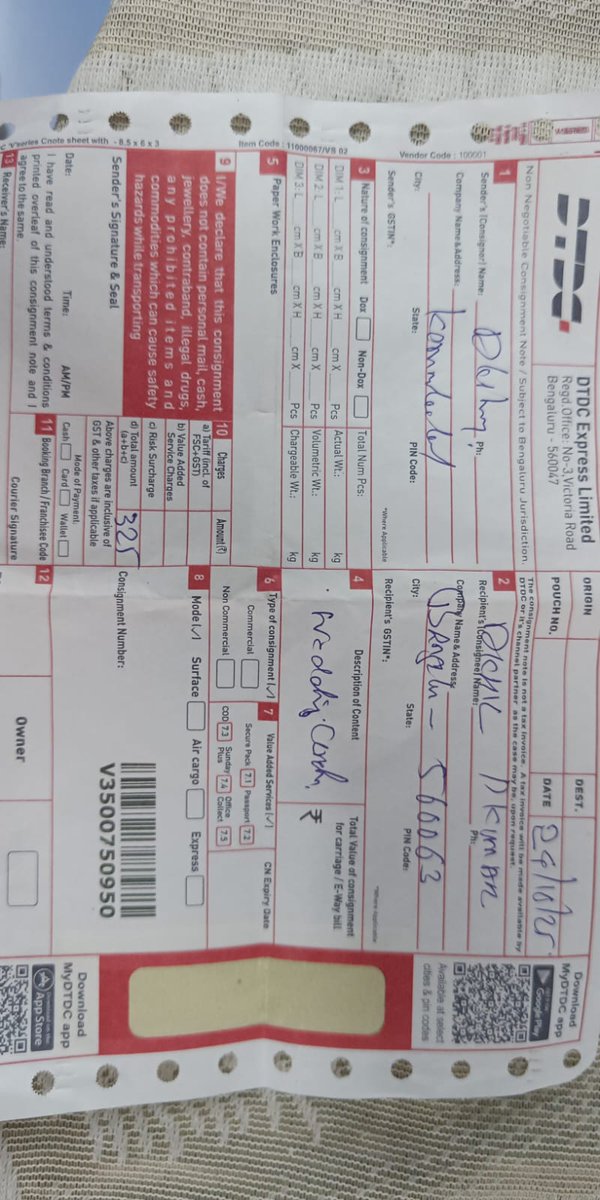 DTDC
DTDC Express Limited
Regd. Office: No-3, Victoria Road
Bengaluru - 560047
Non Negotiable Consignment Note / Subject to Bengaluru Jurisdiction.
ORIGIN
DEST.
POUCH NO.
DATE
The consignment note is not a tax invoice. A tax invoice will be made available by
DTDC or it's channel partner as the case may be, upon request.
Download
MyDTDC app
Google Play
Vendor Code : 100001
1 Sender's (Consignor) Name:
Ph:
Company Name & Address:
City:
State:
PIN Code:
Sender's GSTIN*:
*Where Applicable
2 Recipient's (Consignee) Name:
Ph:
Company Name & Address:
560063
City:
State:
PIN Code:
Recipient's GSTIN*:
*Where Applicable
Available at select
cities & pin codes
Item Code : 11000067/VS 02
3 Nature of consignment Dox Non-Dox Total Num Pcs:
DIM 1: L cm X B cm X H cm X Pcs Actual Wt.: kg
DIM 2: L cm X B cm X H cm X Pcs Volumetric Wt.: kg
DIM 3: L cm X B cm X H cm X Pcs Chargeable Wt.: kg
4 Description of Content
Total Value of consignment
for carriage / E-Way bill
₹
5 Paper Work Enclosures
6 Type of consignment (✓)
Commercial
Non Commercial
7 Value Added Services (✓)
CN Expiry Date
Secure Pack 7.1 Passport 7.2
COD 7.3 Sunday Plus 7.4 Office Collect 7.5
series Cnote sheet with - 8.5 x 6 x 3
9 I/We declare that this consignment
does not contain personal mail, cash,
jewellery, contraband, illegal drugs,
any prohibited items and
commodities which can cause safety
hazards while transporting
Sender's Signature & Seal
10 Charges Amount (₹)
a) Tariff (incl. of
FSC+GST)
b) Value Added
Service Charges
c) Risk Surcharge
d) Total amount
(a+b+c)
325
Above charges are inclusive of
GST & other taxes if applicable
Mode of Payment:
Cash Card Wallet
8 Mode (✓) Surface Air cargo Express
Consignment Number:
V3500750950
Date: Time: AM/PM
I have read and understood terms & conditions
printed overleaf of this consignment note and I
agree to the same.
13 Receiver's Name:
11 Booking Branch / Franchisee Code
Courier Signature
12
Owner
Download
MyDTDC app
App Store